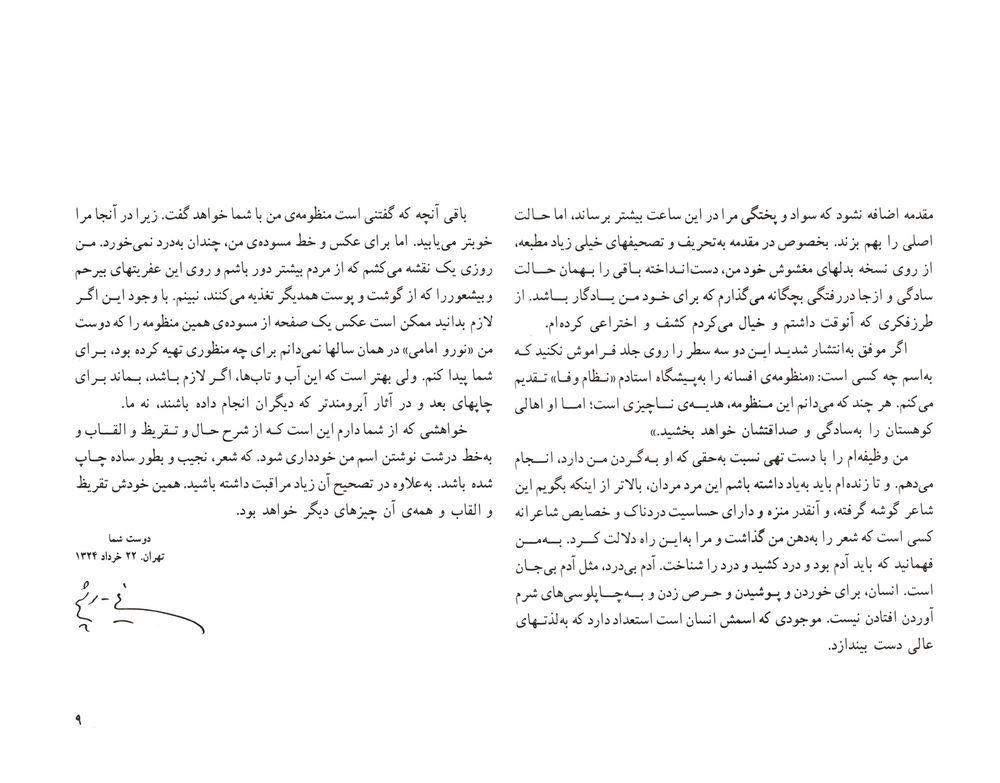 مقدمه اضافه نشود که سواد و پختگی مرا در این ساعت بیشتر برساند، اما حالت
اصلی را بهم بزند. بخصوص در مقدمه به‌تحریف و تصحیفهای خیلی زیاد مطبعه،
از روی نسخه بدلهای مغشوش خود من، دست‌انداخته باقی را بهمان حالت
سادگی و ازجا دررفتگی بچگانه می‌گذارم که برای خود من یادگار باشد. از
طرزفکری که آنوقت داشتم و خیال می‌کردم کشف و اختراعی کرده‌ام.
اگر موفق به‌انتشار شدید این دو سه سطر را روی جلد فراموش نکنید که
به‌اسم چه کسی است: «منظومه‌ی افسانه را به‌پیشگاه استادم «نظام وفا» تقدیم
می‌کنم. هر چند که می‌دانم این منظومه، هدیه‌ی ناچیزی است؛ اما او اهالی
کوهستان را به‌سادگی و صداقتشان خواهد بخشید.»
من وظیفه‌ام را با دست تهی نسبت به‌حقی که او به‌گردن من دارد، انجام
می‌دهم. و تا زنده‌ام باید به‌یاد داشته باشم این مرد مردان، بالاتر از اینکه بگویم این
شاعر گوشه گرفته، و آنقدر منزه و دارای حساسیت دردناک و خصایص شاعرانه
کسی است که شعر را به‌دهن من گذاشت و مرا به‌این راه دلالت کرد. به‌من
فهمانید که باید آدم بود و درد کشید و درد را شناخت. آدم بی‌درد، مثل آدم بی‌جان
است. انسان، برای خوردن و پوشیدن و حرص زدن و به‌چاپلوسی‌های شرم
آوردن افتادن نیست. موجودی که اسمش انسان است استعداد دارد که به‌لذتهای
عالی دست بیندازد.
باقی آنچه که گفتنی است منظومه‌ی من با شما خواهد گفت. زیرا در آنجا مرا
خوبتر می‌یابید. اما برای عکس و خط مسوده‌ی من، چندان به‌درد نمی‌خورد. من
روزی یک نقشه می‌کشم که از مردم بیشتر دور باشم و روی این عفریتهای بیرحم
وبیشعوررا که از گوشت و پوست همدیگر تغذیه می‌کنند، نبینم. با وجود این اگر
لازم بدانید ممکن است عکس یک صفحه از مسوده‌ی همین منظومه را که دوست
من «نورو امامی» در همان سالها نمی‌دانم برای چه منظوری تهیه کرده بود، برای
شما پیدا کنم. ولی بهتر است که این آب و تاب‌ها، اگر لازم باشد، بماند برای
چاپهای بعد و در آثار آبرومندتر که دیگران انجام داده باشند، نه ما.
خواهشی که از شما دارم این است که از شرح حال و تقریظ و القاب و
به‌خط درشت نوشتن اسم من خودداری شود. که شعر، نجیب و بطور ساده چاپ
شده باشد. به‌علاوه در تصحیح آن زیاد مراقبت داشته باشید. همین خودش تقریظ
و القاب و همه‌ی آن چیزهای دیگر خواهد بود.
دوست شما
تهران. ۲۲ خرداد ۱۳۲۴
۹